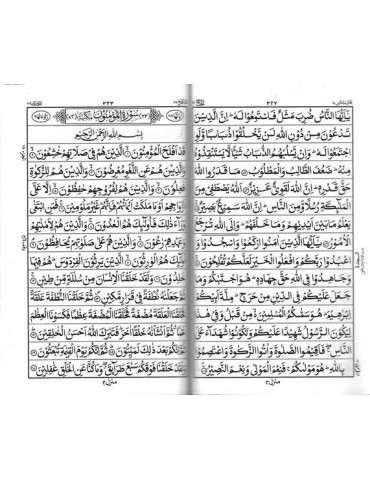 ٣٢٢
يٰٓاَيُّهَا النَّاسُ ضُرِبَ مَثَلٌ فَاسْتَمِعُوْا لَهٗ ؕ اِنَّ الَّذِيْنَ
تَدْعُوْنَ مِنْ دُوْنِ اللّٰهِ لَنْ يَّخْلُقُوْا ذُبَابًا وَّلَوِ
اجْتَمَعُوْا لَهٗ ؕ وَاِنْ يَّسْلُبْهُمُ الذُّبَابُ شَيْـًٔا لَّا يَسْتَنْقِذُوْهُ
مِنْهُ ؕ ضَعُفَ الطَّالِبُ وَالْمَطْلُوْبُ ۝ مَا قَدَرُوا اللّٰهَ
حَقَّ قَدْرِهٖ ؕ اِنَّ اللّٰهَ لَقَوِيٌّ عَزِيْزٌ ۝ اَللّٰهُ يَصْطَفِيْ مِنَ
الْمَلٰٓئِكَةِ رُسُلًا وَّمِنَ النَّاسِ ؕ اِنَّ اللّٰهَ سَمِيْعٌۢ بَصِيْرٌ ۝
يَعْلَمُ مَا بَيْنَ اَيْدِيْهِمْ وَمَا خَلْفَهُمْ ؕ وَاِلَى اللّٰهِ تُرْجَعُ
الْاُمُوْرُ ۝ يٰٓاَيُّهَا الَّذِيْنَ اٰمَنُوا ارْكَعُوْا وَاسْجُدُوْا وَ
اعْبُدُوْا رَبَّكُمْ وَافْعَلُوا الْخَيْرَ لَعَلَّكُمْ تُفْلِحُوْنَ ۝
وَجَاهِدُوْا فِي اللّٰهِ حَقَّ جِهَادِهٖ ؕ هُوَ اجْتَبٰىكُمْ وَمَا
جَعَلَ عَلَيْكُمْ فِي الدِّيْنِ مِنْ حَرَجٍ ؕ مِلَّةَ اَبِيْكُمْ
اِبْرٰهِيْمَ ؕ هُوَ سَمّٰىكُمُ الْمُسْلِمِيْنَ ۙ مِنْ قَبْلُ وَفِيْ هٰذَا
لِيَكُوْنَ الرَّسُوْلُ شَهِيْدًا عَلَيْكُمْ وَتَكُوْنُوْا شُهَدَآءَ عَلَى
النَّاسِ ۚ فَاَقِيْمُوا الصَّلٰوةَ وَاٰتُوا الزَّكٰوةَ وَاعْتَصِمُوْا
بِاللّٰهِ ؕ هُوَ مَوْلٰىكُمْ ۚ فَنِعْمَ الْمَوْلٰى وَنِعْمَ النَّصِيْرُ ۝
منزل
٣٢٣
سُوْرَةُ الْمُؤْمِنُوْنَ مَكِّيَّةٌ
بِسْمِ اللّٰهِ الرَّحْمٰنِ الرَّحِيْمِ
قَدْ اَفْلَحَ الْمُؤْمِنُوْنَ ۝ الَّذِيْنَ هُمْ فِيْ صَلَاتِهِمْ خٰشِعُوْنَ ۝
وَالَّذِيْنَ هُمْ عَنِ اللَّغْوِ مُعْرِضُوْنَ ۝ وَالَّذِيْنَ هُمْ لِلزَّكٰوةِ
فٰعِلُوْنَ ۝ وَالَّذِيْنَ هُمْ لِفُرُوْجِهِمْ حٰفِظُوْنَ ۝ اِلَّا عَلٰٓى
اَزْوَاجِهِمْ اَوْ مَا مَلَكَتْ اَيْمَانُهُمْ فَاِنَّهُمْ غَيْرُ مَلُوْمِيْنَ ۝ فَمَنِ ابْتَغٰى
وَرَآءَ ذٰلِكَ فَاُولٰٓئِكَ هُمُ الْعٰدُوْنَ ۝ وَالَّذِيْنَ هُمْ لِاَمٰنٰتِهِمْ وَ
عَهْدِهِمْ رٰعُوْنَ ۝ وَالَّذِيْنَ هُمْ عَلٰى صَلَوٰتِهِمْ يُحَافِظُوْنَ ۝
اُولٰٓئِكَ هُمُ الْوٰرِثُوْنَ ۝ الَّذِيْنَ يَرِثُوْنَ الْفِرْدَوْسَ ؕ هُمْ فِيْهَا
خٰلِدُوْنَ ۝ وَلَقَدْ خَلَقْنَا الْاِنْسَانَ مِنْ سُلٰلَةٍ مِّنْ طِيْنٍ ۝
ثُمَّ جَعَلْنٰهُ نُطْفَةً فِيْ قَرَارٍ مَّكِيْنٍ ۝ ثُمَّ خَلَقْنَا النُّطْفَةَ عَلَقَةً
فَخَلَقْنَا الْعَلَقَةَ مُضْغَةً فَخَلَقْنَا الْمُضْغَةَ عِظٰمًا فَكَسَوْنَا الْعِظٰمَ
لَحْمًا ۗ ثُمَّ اَنْشَاْنٰهُ خَلْقًا اٰخَرَ ؕ فَتَبٰرَكَ اللّٰهُ اَحْسَنُ الْخٰلِقِيْنَ ۝
ثُمَّ اِنَّكُمْ بَعْدَ ذٰلِكَ لَمَيِّتُوْنَ ۝ ثُمَّ اِنَّكُمْ يَوْمَ الْقِيٰمَةِ تُبْعَثُوْنَ ۝
وَلَقَدْ خَلَقْنَا فَوْقَكُمْ سَبْعَ طَرَآئِقَ ۖ وَمَا كُنَّا عَنِ الْخَلْقِ غٰفِلِيْنَ ۝
منزل